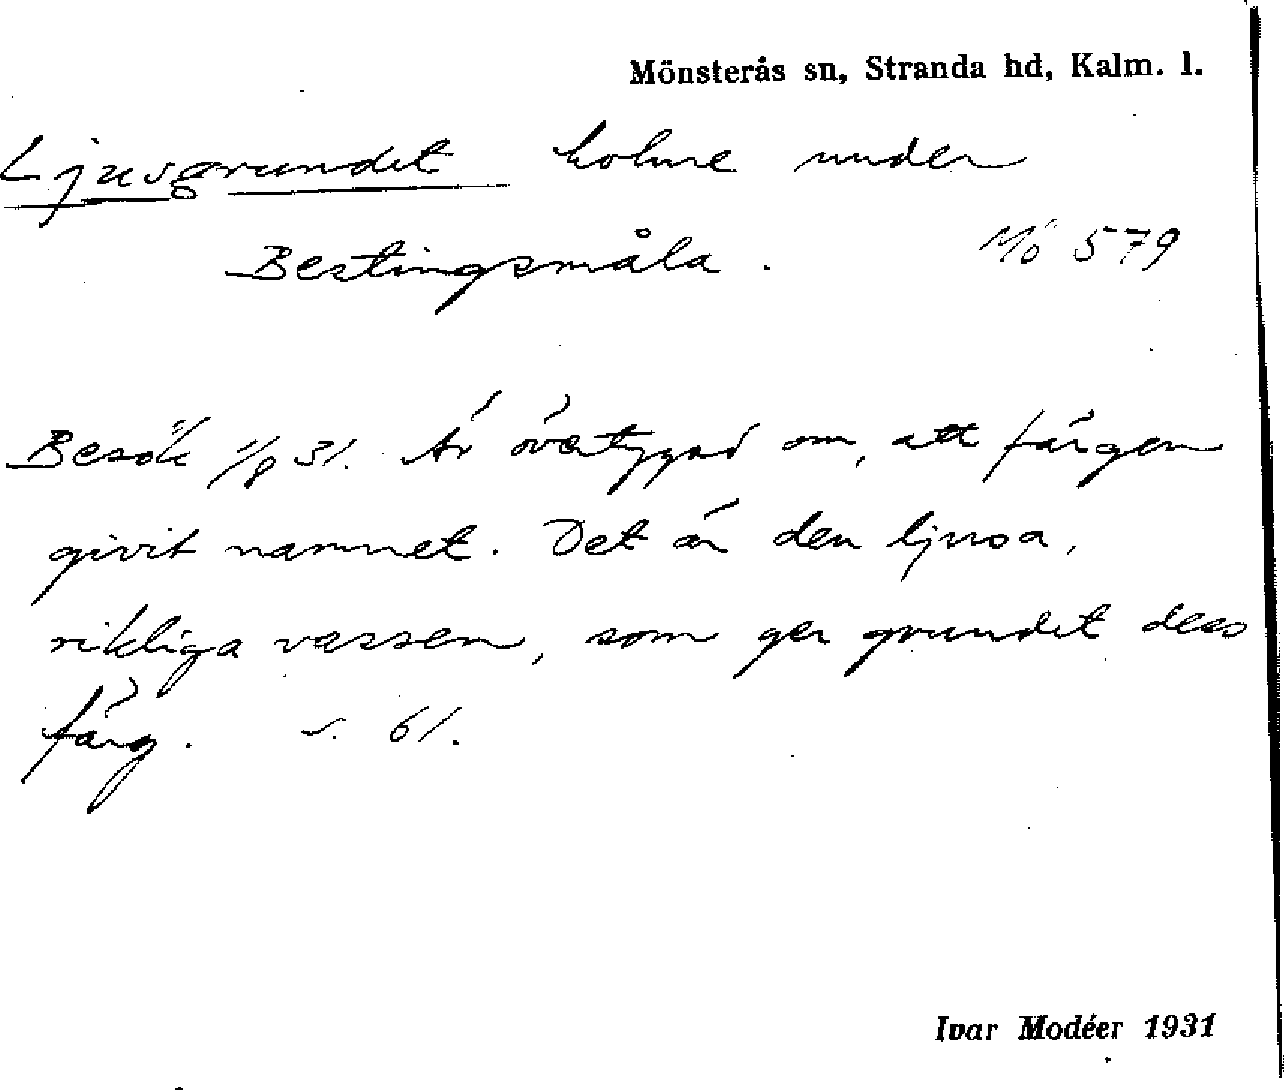 Mönsterås sn, Stranda hd, Kalm. l.
Ljusgrundet holme under
Bestingsmåla. Mö 579
Besök 1/8 31. Är övertygad om, att färgen
givit namnet. Det är den ljusa,
rikliga vassen, som ger grundet dess
färg. s. 61.
Ivar Modéer 1931